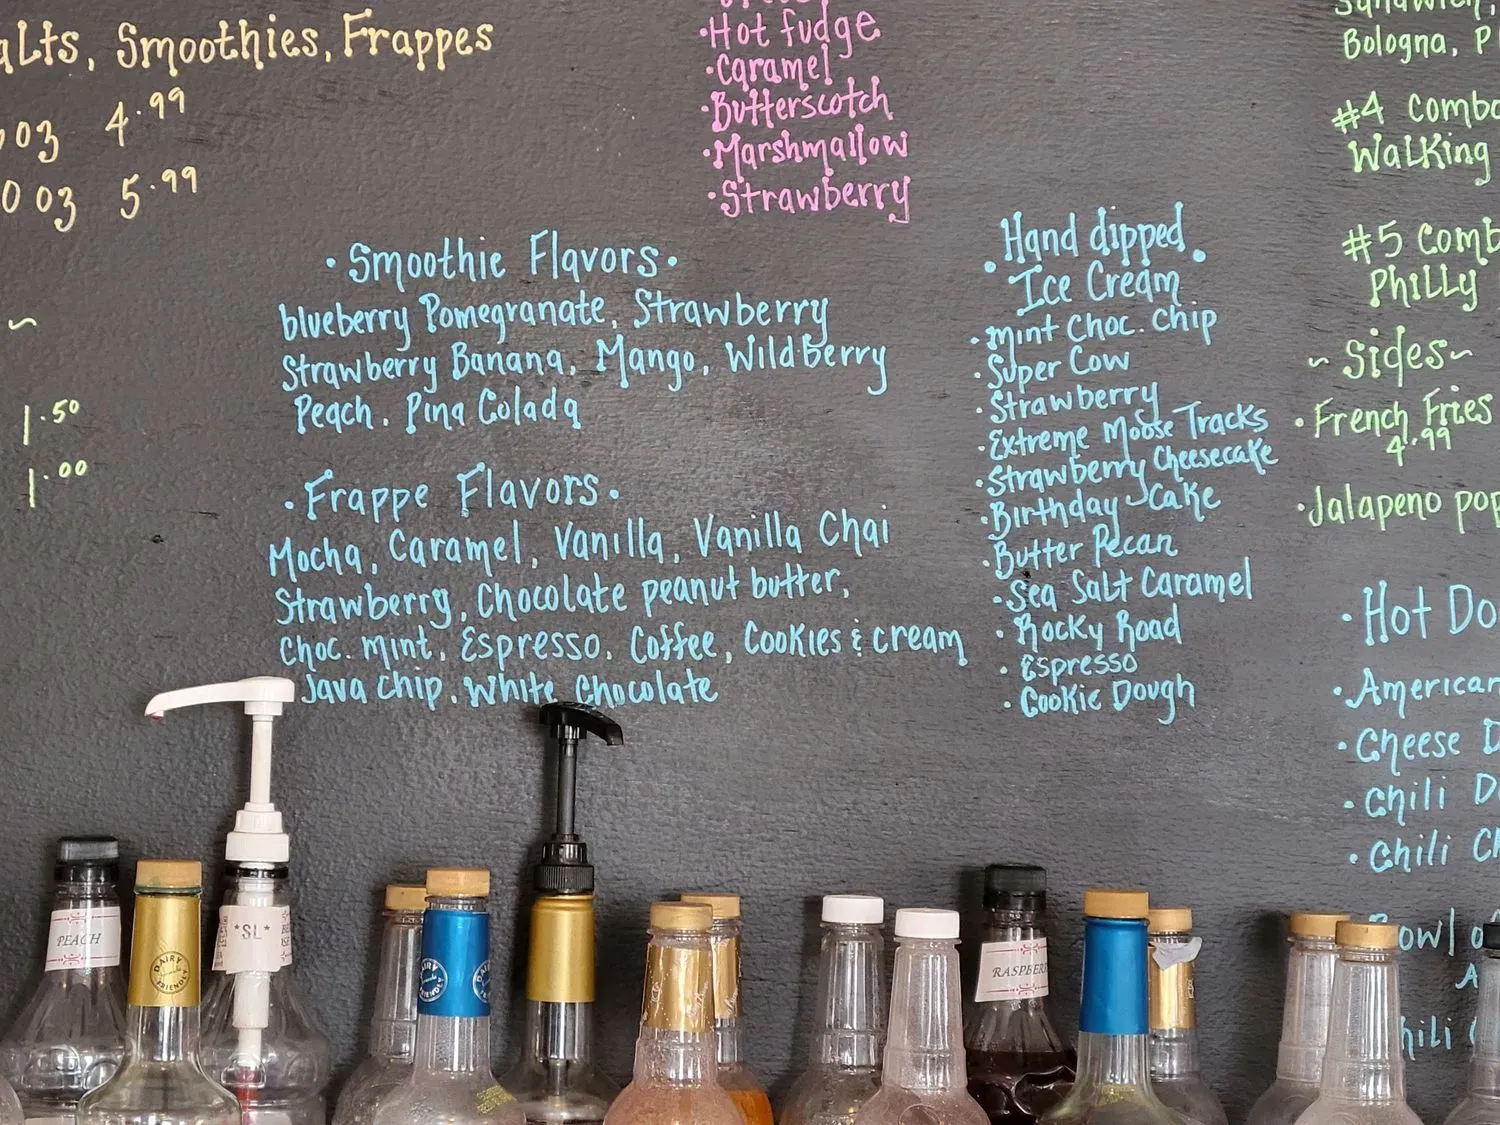 Smoothies, Frappes
4.99
03 5.99
1.50
1.00
• Hot fudge
• Caramel
• Butterscotch
• Marshmallow
• Strawberry
• Smoothie Flavors •
blueberry Pomegranate, Strawberry
Strawberry Banana, Mango, Wildberry
Peach, Pina Colada
• Frappe Flavors •
Mocha, Caramel, Vanilla, Vanilla Chai
Strawberry, Chocolate peanut butter,
Choc. Mint, Espresso, Coffee, Cookies & cream
Java chip, White Chocolate
Hand dipped
• Ice Cream •
• Mint Choc. Chip
• Super Cow
• Strawberry
• Extreme Moose Tracks
• Strawberry Cheesecake
• Birthday Cake
• Butter Pecan
• Sea Salt Caramel
• Rocky Road
• Espresso
• Cookie Dough
Bologna,
#4 Combo
Walking
#5 Comb
Philly
~ Sides ~
• French Fries
4.99
• Jalapeno pop
• Hot Do
• American
• Cheese D
• Chili D
• Chili Ch
Bowl
PEACH
DAIRY FRIENDLY
*SL*
DAIRY FRIENDLY
RASPBER